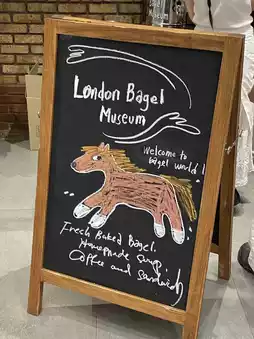 London Bagel
Museum
Welcome to
bagel world!
Fresh Baked Bagel.
Homemade soup
Coffee and sandwich